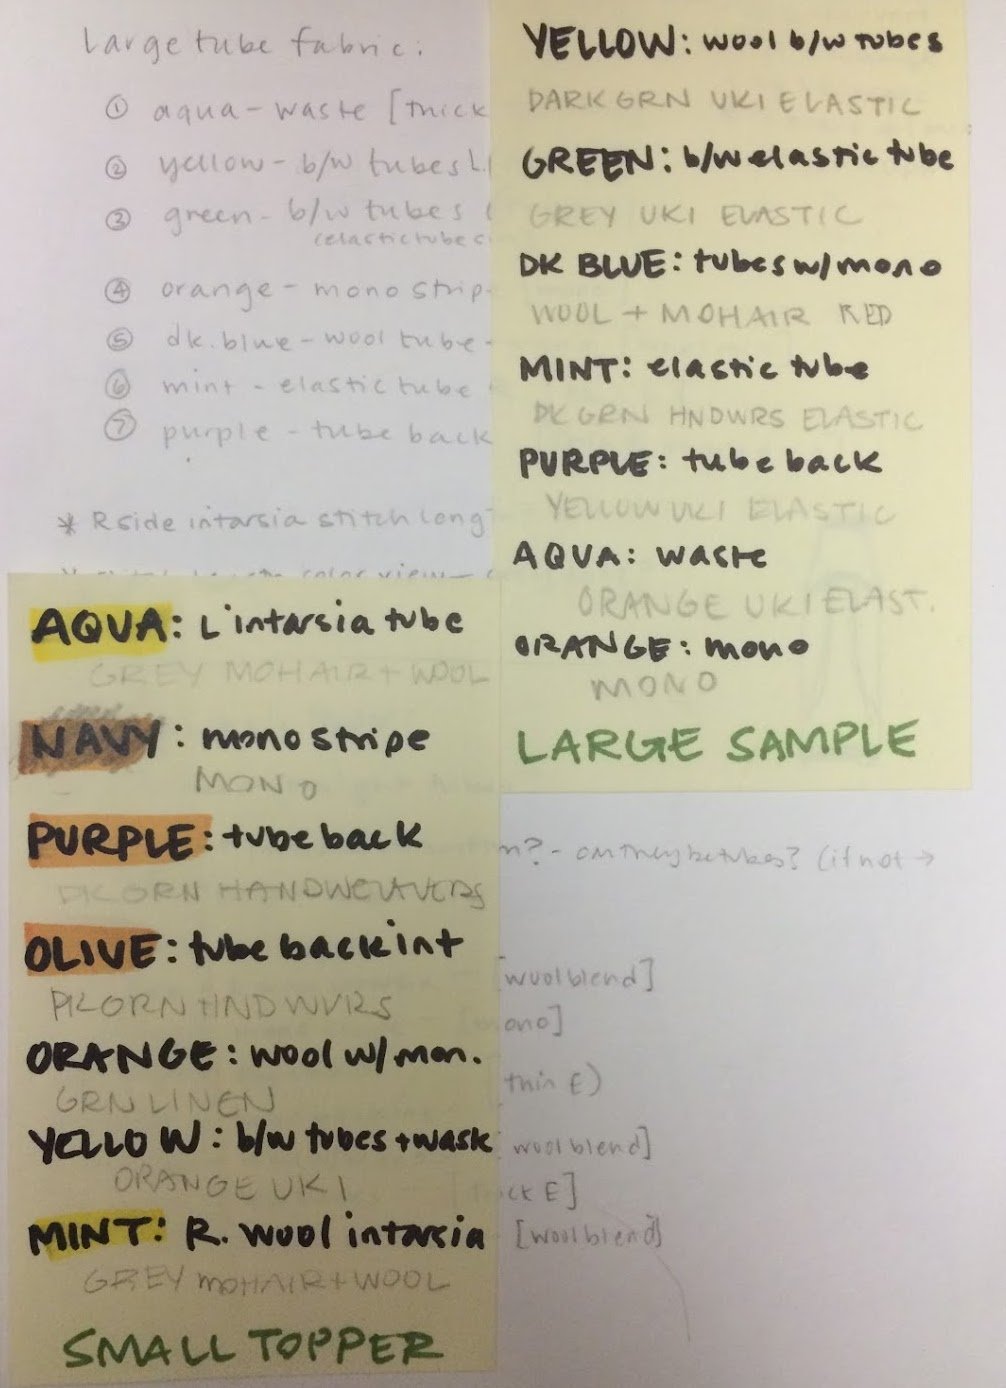 Large tube fabric:
① aqua - waste [thick
② yellow - b/w tubes
③ green - b/w tubes (
(elastic tube
④ orange - mono strip
⑤ dk. blue - wool tube -
⑥ mint - elastic tube
⑦ purple - tube back
* R side intarsia stitch long
color view
YELLOW: wool b/w tubes
DARK GRN UKI ELASTIC
GREEN: b/w elastic tube
GREY UKI ELASTIC
DK BLUE: tubes w/mono
WOOL + MOHAIR RED
MINT: elastic tube
DK GRN HNDWRS ELASTIC
PURPLE: tube back
YELLOW UKI ELASTIC
AQUA: waste
ORANGE UKI ELAST.
ORANGE: mono
MONO
LARGE SAMPLE
AQUA: L intarsia tube
GREY MOHAIR + WOOL
NAVY: mono stripe
MONO
PURPLE: tube back
DK GRN HANDWEAVERS
OLIVE: tube back int
DK GRN HNDWVRS
ORANGE: wool w/ mon.
GRN LINEN
YELLOW: b/w tubes + wask
ORANGE UKI
MINT: R. wool intarsia
GREY MOHAIR + WOOL
SMALL TOPPER
n? - can they be tubes? (if not →
[wool blend]
ono]
thin E)
wool blend]
ck E]
[wool blend]